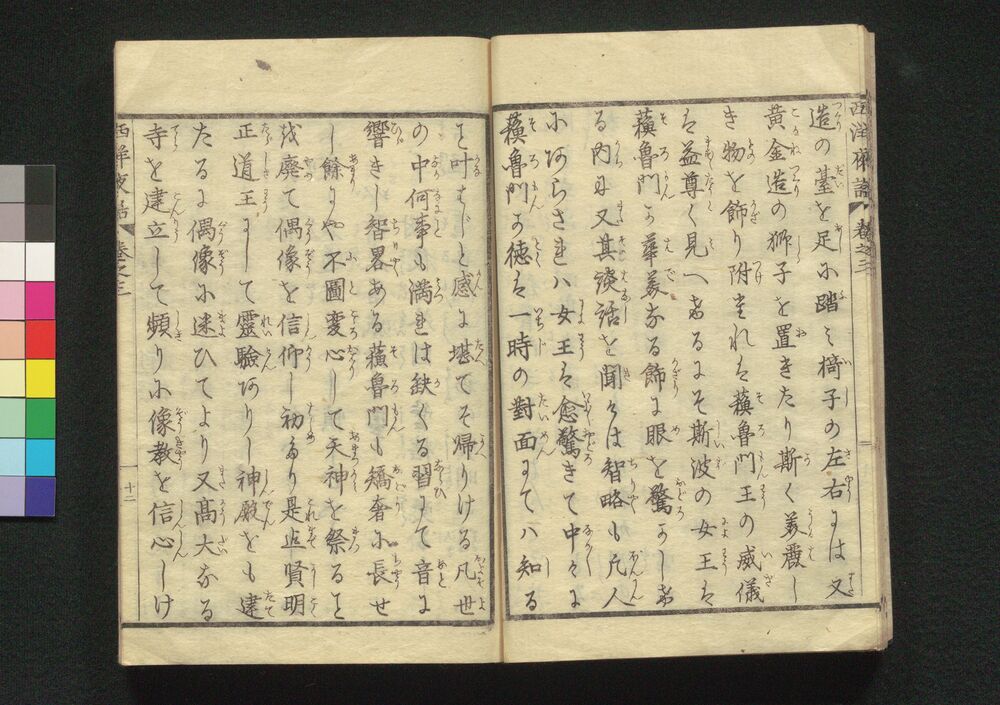 西洋夜話 巻之三
造の臺を足に踏み椅子の左右には又
黄金造の獅子を置きたり斯く美麗し
き物を飾り附ぬれば蘓魯門王の威儀
は益尊く見へけるにぞ斯波の女王は
蘓魯門の華美なる飾に眼を驚かしけ
る内に又其談話を聞けば智略も凡人
にあらざれハ女王は愈驚きて中々に
蘓魯門の徳は一時の對面にてハ知る
を叶まじと感に堪てぞ帰りける凡世
の中何事も満れは缺くる習にて音に
響きし智畧ある蘓魯門も矯奢に長せ
し餘にや不圖変心して天神を祭るを
廃て偶像を信仰し初より是迄賢明
正道王にして靈驗ありし神殿をも建
たるに偶像に迷ひてより又髙大なる
寺を建立して頻りに像教を信心しけ
西洋夜話 巻之三
十二